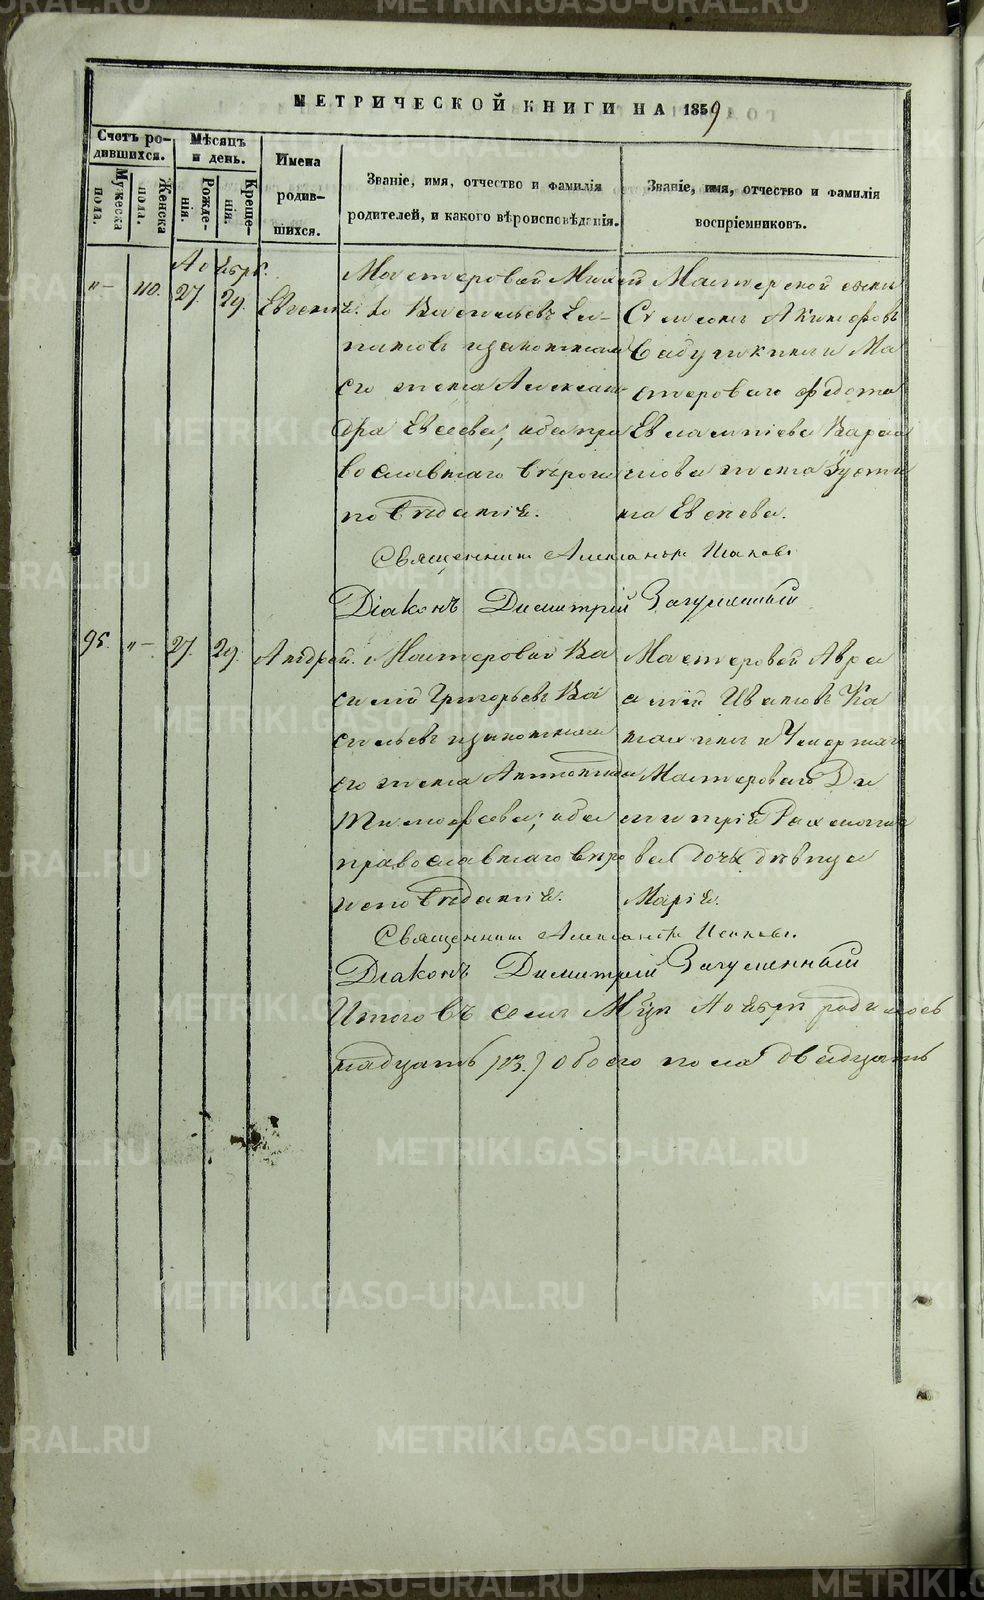 МЕТРИЧЕСКОЙ КНИГИ НА 1859
Счетъ ро-
дившихся.
Мужеска
пола.
Женска
пола.
Мѣсяцъ
и день.
Рожде-
нія.
Креще-
нія.
Имена
родив-
шихся.
Званіе, имя, отчество и фамилія
родителей, и какого вѣроисповѣданія.
Званіе, имя, отчество и фамилія
воспріемниковъ.
Ноябрь
27. 29.
Мастеровой
ло Васильевъ
патовъ изаконная
его жена Алексан
дра Евсеева; оба пра
вославнаго вѣрои
поведанія.
Мастерской сынъ
Симеонъ Акинфовъ
и Ма
стероваго Федота
Евлампіева
жена Усти
на
Священникъ Александръ
Діаконъ Димитрій Загуменный
95. "– 27. 29. Андрей.
Мастеровой Ва
силій Григорьевъ Ва
сильевъ изаконная
его жена Антонида
Тимофеева; оба
православнаго вѣро
исповѣданія.
Мастеровой Авра
амій Ивановъ Ка
Мастероваго Ди
митрія
ва дочь дѣвица
Марія.
Священникъ Александръ
Діаконъ Димитрій Загуменный
Итого въ семъ Ноябрѣ родилось
надцать (13.) обоего пола двадцать
METRIKI.GASO-URAL.RU